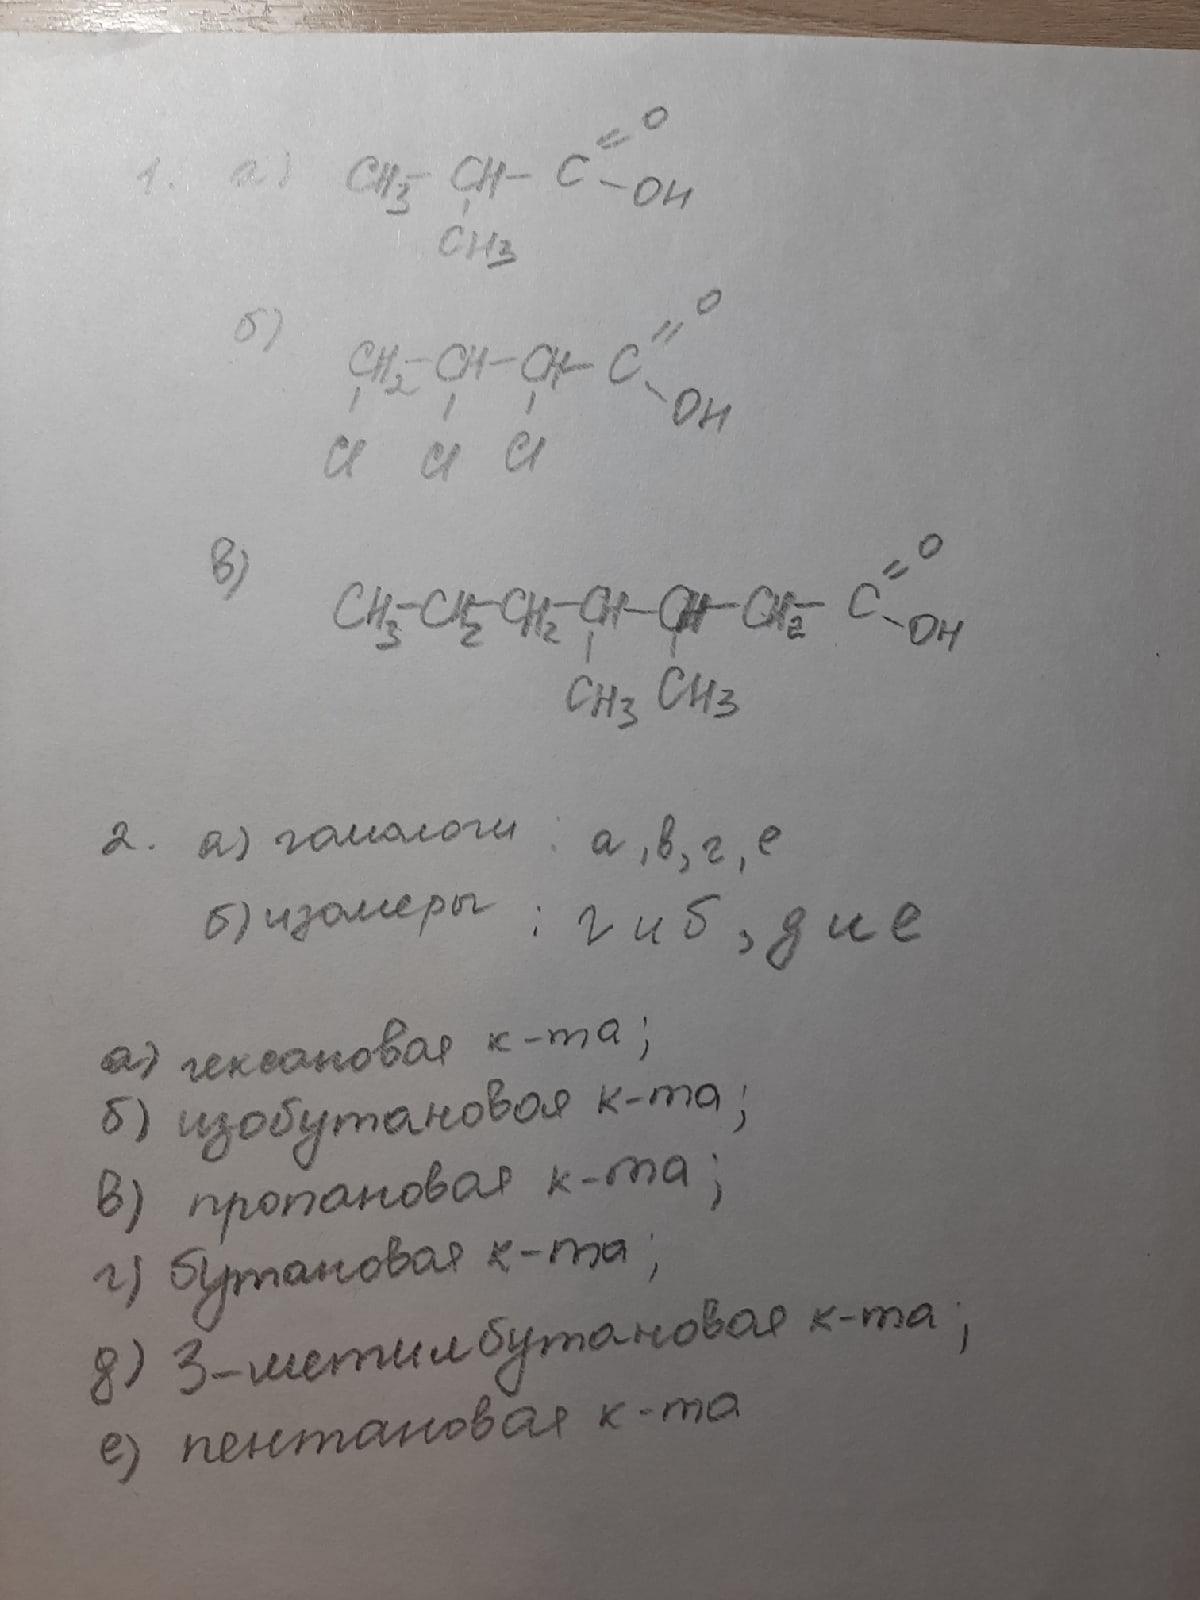 1. а) CH3 - CH - C = O
- OH
CH3
б) CH2 - CH - CH - C = O
- OH
Cl Cl Cl
в) CH3 - CH2 - CH2 - CH - CH - CH2 - C = O
- OH
CH3 CH3
2. а) гомологи : а, в, г, е
б) изомеры : г и б, д и е
а) гексановая к-та;
б) изобутановая к-та;
в) пропановая к-та;
г) бутановая к-та;
д) 3-метилбутановая к-та;
е) пентановая к-та